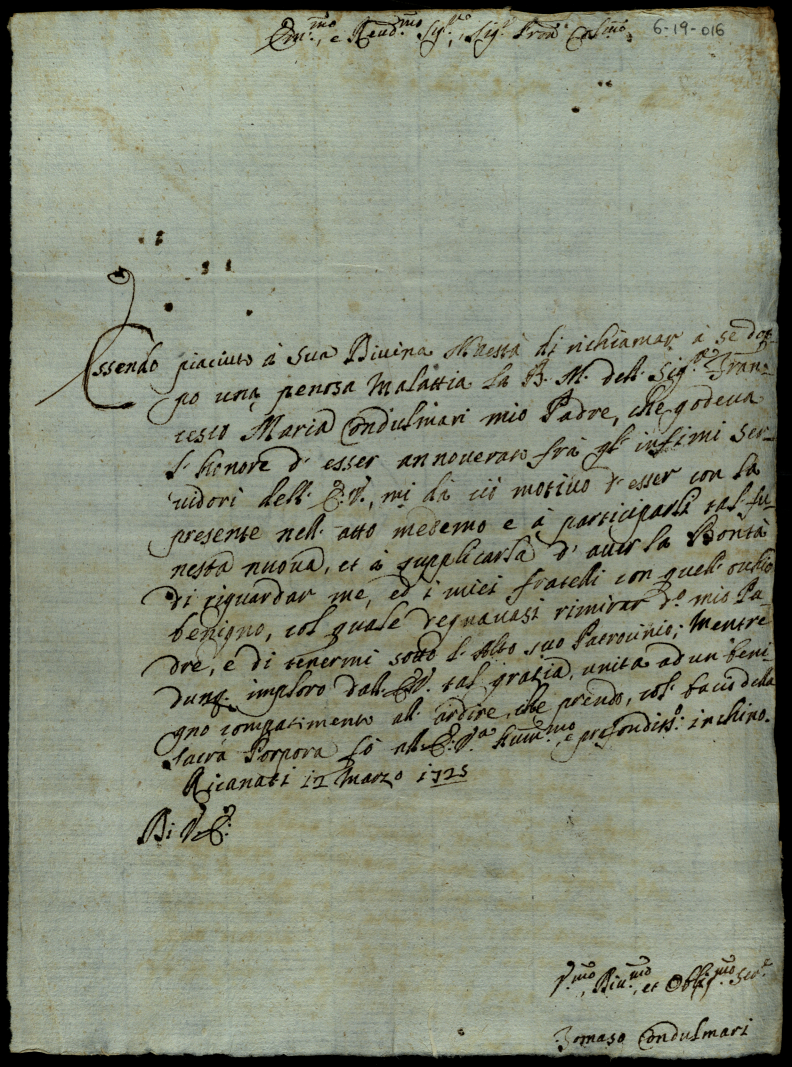 Em.mo, e Rend.mo Sig.re, Sig.r Pron. Col.mo
6-19-016
Essendo piaciuto à Sua Divina Maestà di richiamar à se dop-
po una penosa Malattia la B. M. del Sig.re Fran-
cesco Maria Condulmari mio Padre, che godeva
l'honore d'esser annoverato frà gl'infimi ser-
vidori dell'E.V., mi dà ciò motivo d'esser con la
presente nell'atto medemo e à participarla tal fu-
nesta nuova, et à supplicarla d'aver la Bontà
di riguardar me, ed i miei fratelli con quell'occhio
benigno, col quale degnavasi rimirar d.o mio Pa-
dre, e di tenermi sotto l'Alto suo Patrocinio; Mentre
dunq. imploro dall'E.V. tal gratia, unita ad un beni-
gno compatimento all'ardire, che prendo, col bacio della
sacra Porpora fò all'E.V.a humm.mo, e profondiss.o inchino.
Ricanati 12 Marzo 1725
Di V.E.
V.mo, Div.mo, et Oblig.mo Ser.e
Tomaso Condulmari